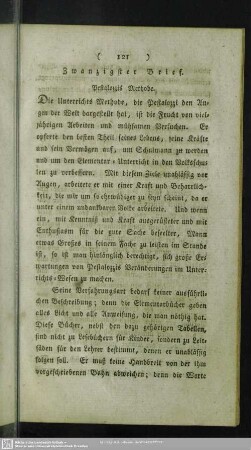 ( 121 )
Zwanzigster Brief.
Pestalozzis Methode.
Die Unterrichts Methode, die Pestalozzi den Au-
gen der Welt dargestellt hat, ist die Frucht von viel-
jährigen Arbeiten und mühsamen Versuchen. Er
opferte den besten Theil seines Lebens, seine Kräfte
und sein Vermögen auf, um Schulmann zu werden
und um den Elementar-Unterricht in den Volksschu-
len zu verbessern. Mit diesem Ziele unablässig vor
Augen, arbeitete er mit einer Kraft und Beharrlich-
keit, die mir um so ehrwürdiger zu seyn scheint, da er
unter einem undankbaren Volke arbeitete. Und wenn
ein, mit Kenntniß und Kraft ausgerüsteter und mit
Enthusiasm für die gute Sache beseelter, Mann
etwas Großes in seinem Fache zu leisten im Stande
ist, so ist man hinlänglich berechtigt, sich große Er-
wartungen von Pestalozzis Veränderungen im Unter-
richts-Wesen zu machen.
Seine Verfahrungsart bedarf keiner ausführli-
chen Beschreibung; denn die Elementarbücher geben
alles Licht und alle Anweisung, die man nöthig hat.
Diese Bücher, nebst den dazu gehörigen Tabellen,
sind nicht zu Lesebüchern für Kinder, sondern zu Leit-
fäden für den Lehrer bestimmt, denen er unablässig
folgen soll. Er muß keine Handbreit von der ihm
vorgeschriebenen Bahn abweichen; denn die Worte